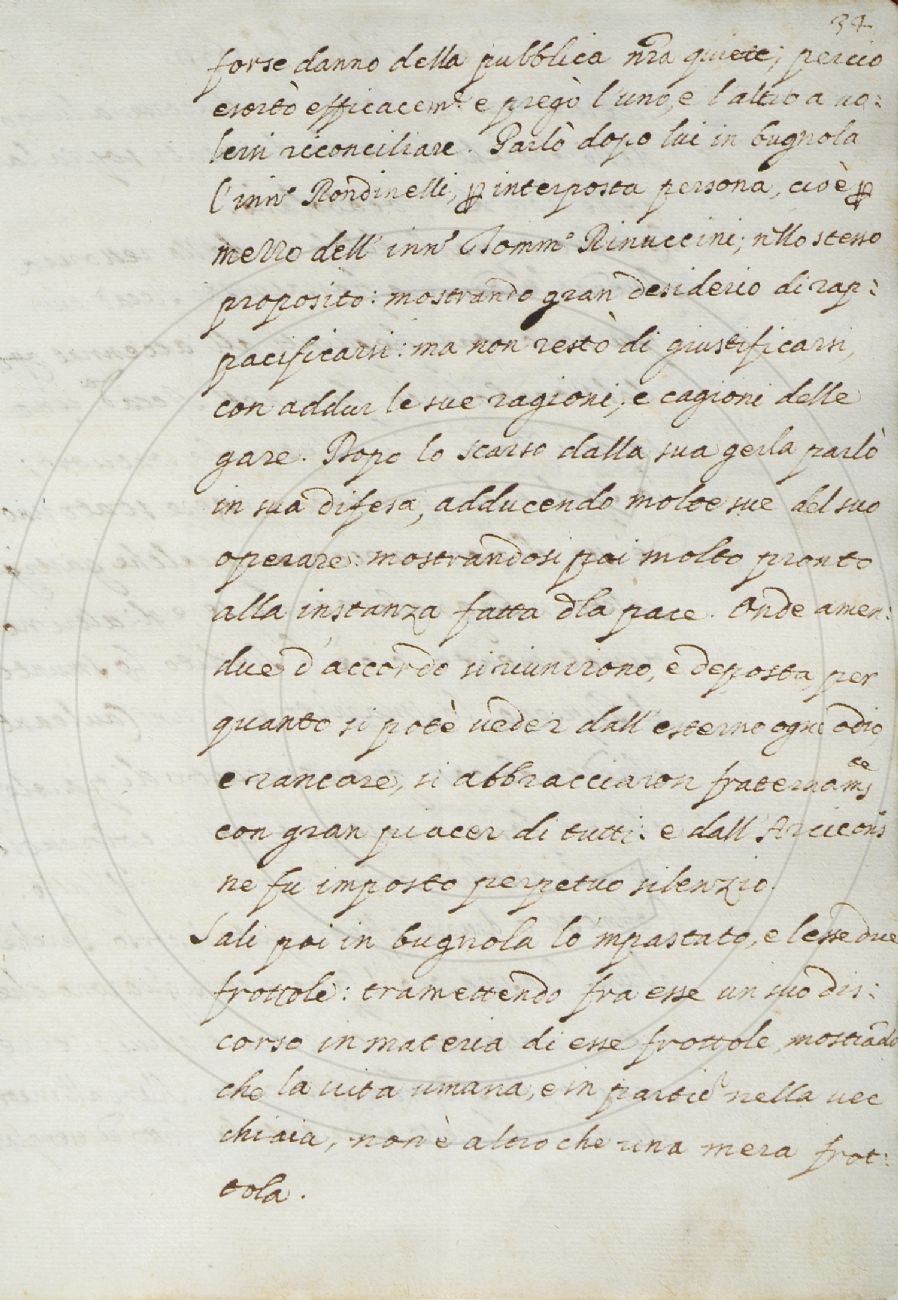 34
forse danno della pubblica nr̃a quiete; perciò
esortò efficacem.e e pregò l'uno, e l'altro a vo:
lersi riconciliare. Parlò dopo lui in bugnola
l'inn.o Rondinelli, ꝑ interposta persona, cioè ꝑ
mezzo dell'inn.o Tomm.o Rinuccini; n'llo stesso
proposito: mostrando gran desiderio di rap:
pacificarsi: ma non restò di giustificarsi,
con addur le sue ragioni, e cagioni delle
gare. Dopo lo scarso dalla sua gerla parlò
in sua difesa, adducendo molte sue del suo
operare: mostrandosi poi molto pronto
alla instanza fatta d'la pace. Onde amen:
due d'accordo si riunirono, e deposta, per
quanto si potè veder dall'esterno ogni odio,
e rancore, si abbracciaron fraternam.te
con gran piacer di tutti: e dall'Arcicons.o
ne fu imposto perpetuo silenzio.
Salì poi in bugnola lo 'mpastato, e lesse due
frottole: tramettendo fra esse un suo dis:
corso in materia di esse frottole, mostrãdo
che la vita umana, e in partic.r nella vec
chiaia, non è altro che una mera frot:
tola.